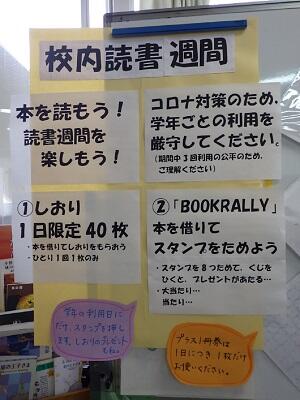 校内読書週間
本を読もう！
読書週間を
楽しもう！
コロナ対策のため、
学年ごとの利用を
厳守してください。
（期間中3回利用の公平のため、
ご理解ください）
①しおり
1日限定40枚
・本を借りてしおりをもらおう
・ひとり1回1枚のみ
②「BOOKRALLY」
本を借りて
スタンプをためよう
・スタンプを8つためて、くじを
ひくと、プレゼントがあたる…
・大当たり…
当たり…
学年の利用日に
だけ、スタンプを押し
ます。しおりのプレゼント
もね。
プラス1冊券は
1日につき1枚だけ
お使いください。